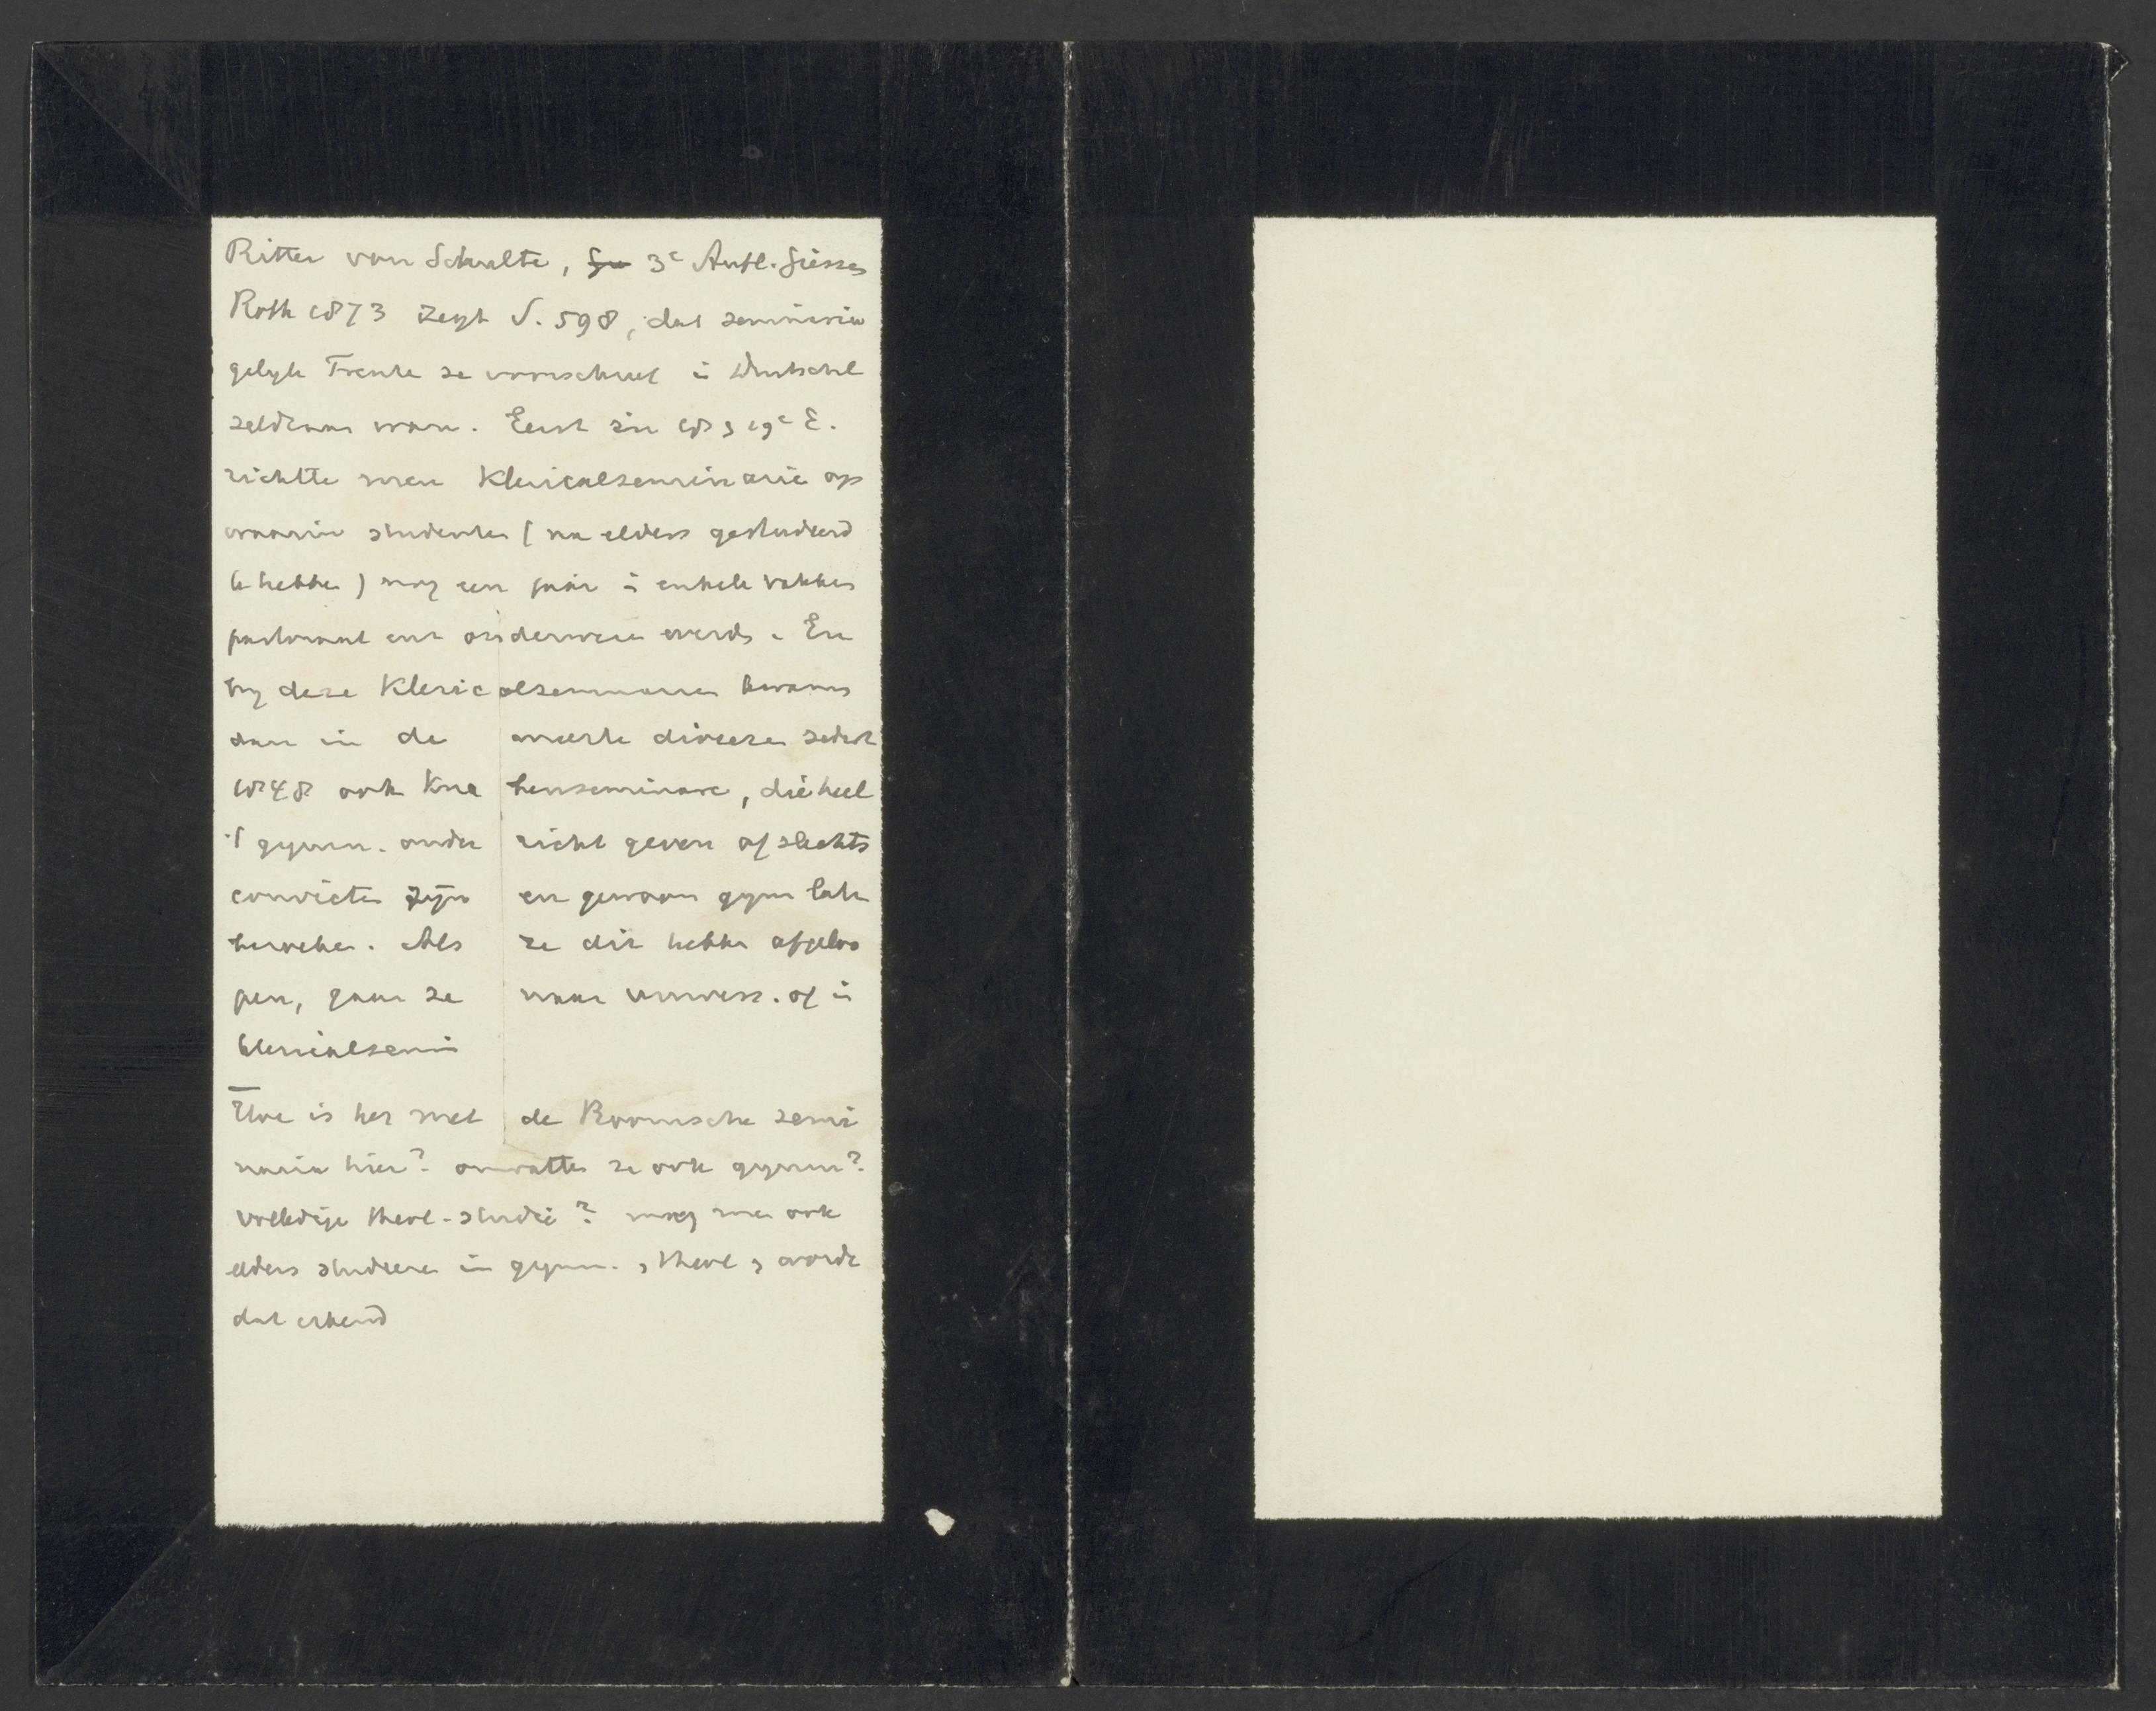 Ritter von Schulte, 3e Aufl. Giessen
Roth 1873 zegt S. 598, dat seminaria
gelyk Trente ze voorschreef in Duitschl
zeldzaam waren. Eerst in 18 en 19e E.
richtte men Klericalseminarie op
waarin studenten (na elders gestudeerd
te hebben) nog een jaar in enkele vakken
pastoraal enz onderwezen werds. En
by deze Klericalseminarien kwams
dan in de meeste diocesen sedert
1848 ook Knabenseminare, die heel
't gymn. onderricht geven of slechts
convicten zijn en gewoon gymn laten
bezoeken. Als ze dit hebben afgeloo
pen, gaan ze naar univers. of in
klericalsemin
Hoe is het met de Roomsche semi
naria hier? omvatten ze ook gymn?
volledige theol. studie? mag men ook
elders studeeren in gymn. en theol en wordt
dat erkend